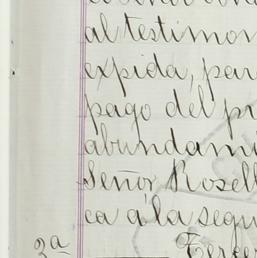 al testimon
expida, par
pago del pr
abundami
Señor Rosell
ca a la segu
3ª Tercer